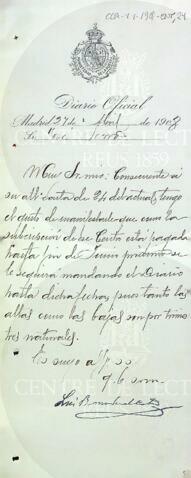 CCR-1-1-1908-
Diario Oficial
Madrid 27 de Abril de 1908
Sr.
Muy Sr. mio: Consecuente á
su att. carta de 24 del actual, tengo
el gusto de manifestarle que como la
subscripción de ese Centro está pagada
hasta fin de Junio próximo se
le seguirá mandando el Diario
hasta dicha fecha, pues tanto las
altas como las bajas son por trimes
tres naturales.
Es suyo
q. b. s. m.
CENTRE DE LECTURA
REUS 1859